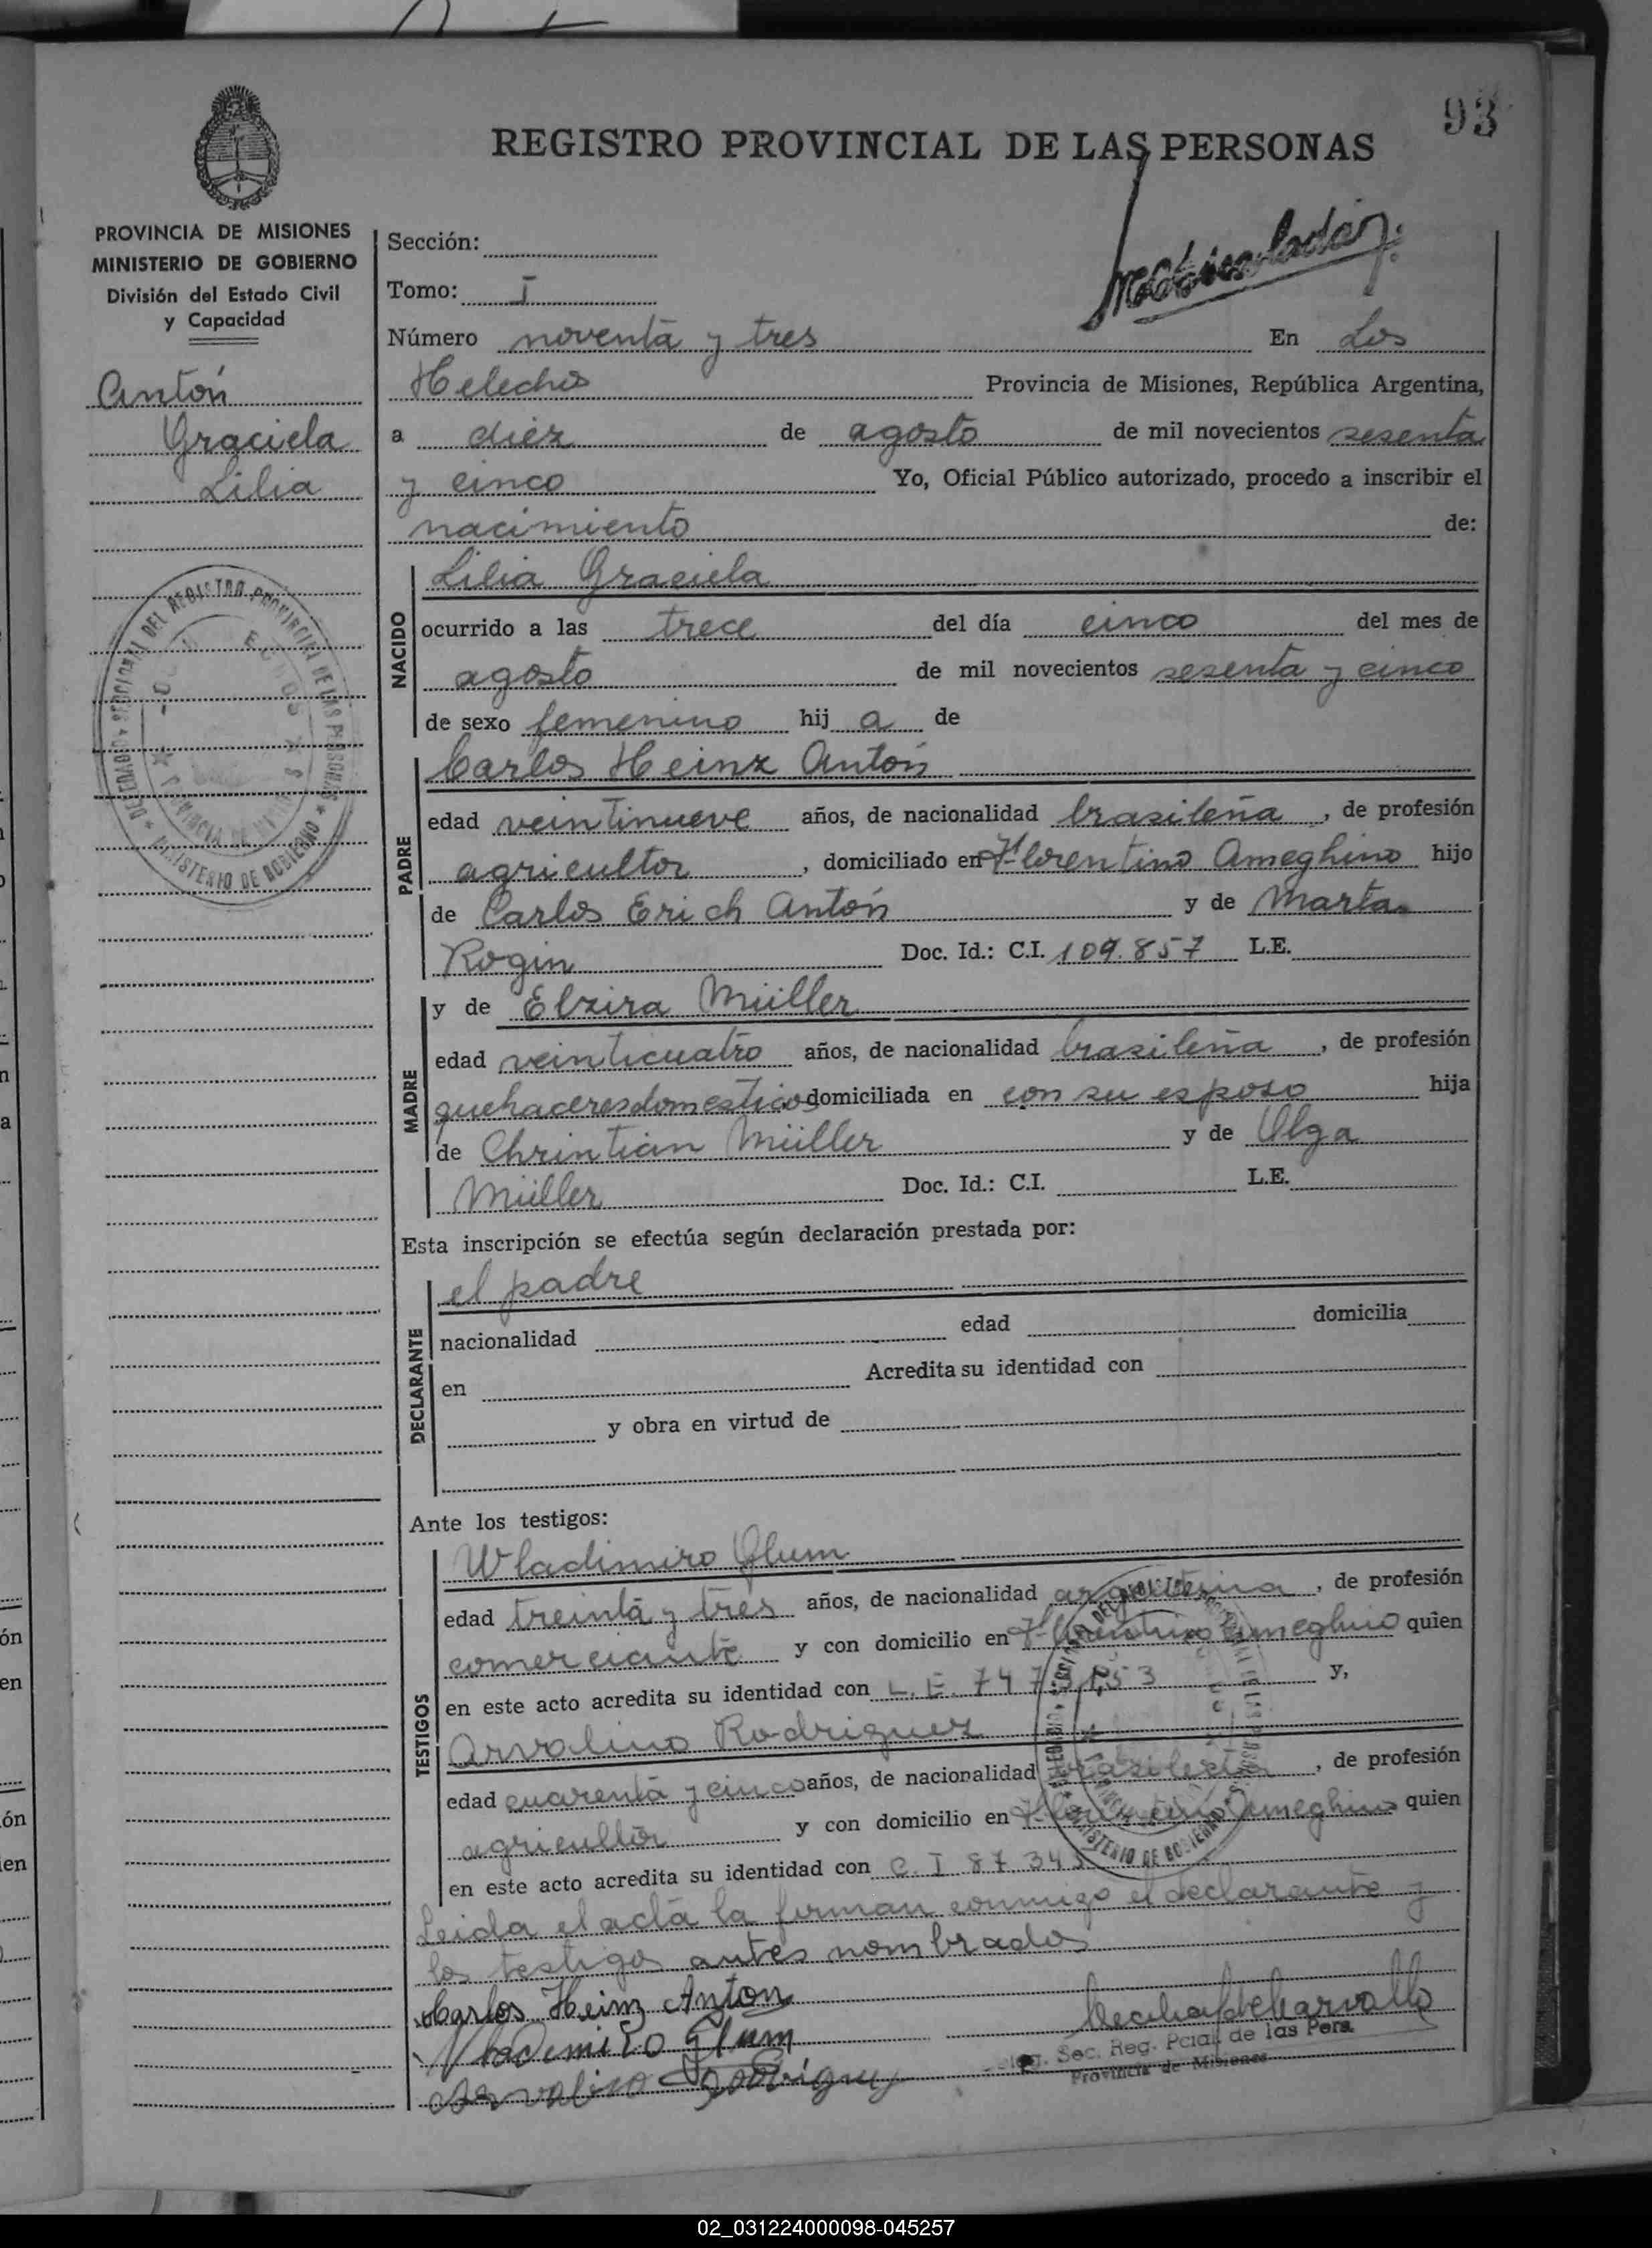 93
REGISTRO PROVINCIAL DE LAS PERSONAS
PROVINCIA DE MISIONES
MINISTERIO DE GOBIERNO
División del Estado Civil
y Capacidad
Antón
Graciela
Lilia
Matriculada
Sección:
Tomo: I
Número noventa y tres En Los
Helechos Provincia de Misiones, República Argentina,
a diez de agosto de mil novecientos sesenta
y cinco Yo, Oficial Público autorizado, procedo a inscribir el
nacimiento de:
NACIDO
Lilia Graciela
ocurrido a las trece del día cinco del mes de
agosto de mil novecientos sesenta y cinco
de sexo femenino hij a de
PADRE
Carlos Heinz Antón
edad veintinueve años, de nacionalidad brasileña, de profesión
agricultor, domiciliado en Florentino Ameghino hijo
de Carlos Erich Antón y de Marta
Rogin Doc. Id.: C.I. 109.857 L.E.
MADRE
y de Elzira Müller
edad veinticuatro años, de nacionalidad brasileña, de profesión
quehaceres domesticos domiciliada en con su esposo hija
de Chrintian Müller y de Olga
Müller Doc. Id.: C.I. L.E.
Esta inscripción se efectúa según declaración prestada por:
DECLARANTE
el padre
nacionalidad edad domicilia
en Acredita su identidad con
y obra en virtud de
Ante los testigos:
TESTIGOS
Wladimiro Glum
edad treinta y tres años, de nacionalidad argentina, de profesión
comerciante y con domicilio en Florentino Ameghino quien
en este acto acredita su identidad con L.E. y,
Arvalino Rodriguez
edad cuarenta y cinco años, de nacionalidad brasileña, de profesión
agricultor y con domicilio en Florentino Ameghino quien
en este acto acredita su identidad con C. I 87 343
Leida el acta la firman conmigo el declarante y
los testigos antes nombrados
Carlos Heinz Anton
Wladimiro Glum
Arvalino Rodriguez
Sec. Reg. Pcial. de las Pers.
Provincia de Misiones
02_031224000098-045257